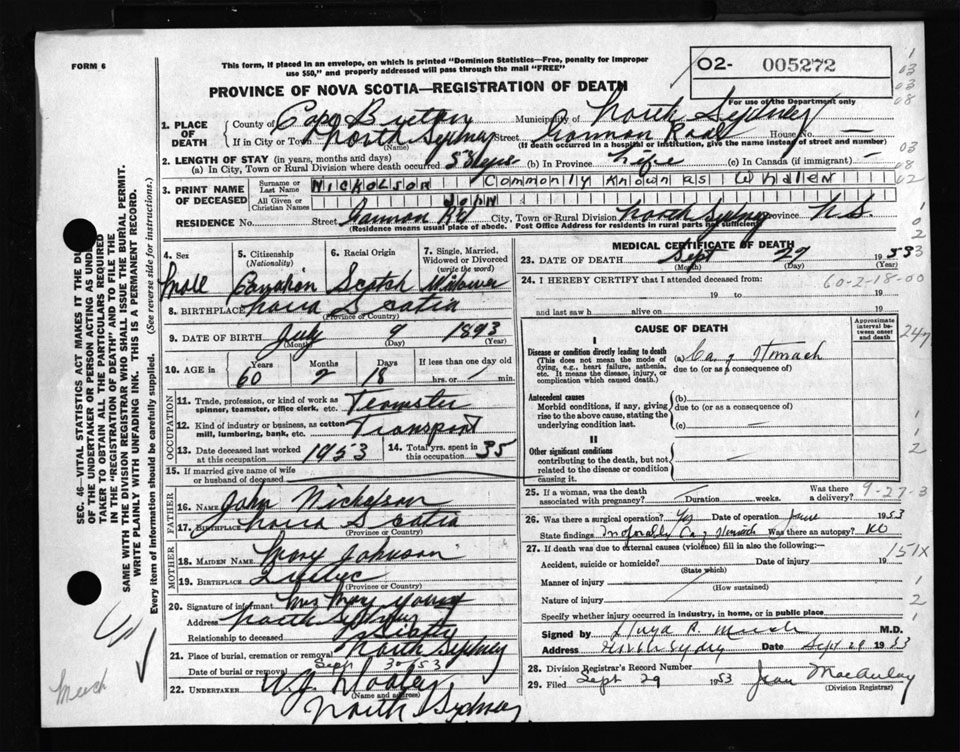 FORM 6
This form, if placed in an envelope, on which is printed "Dominion Statistics—Free, penalty for improper
use $50," and properly addressed will pass through the mail "FREE"
O2- 005272
For use of the Department only
PROVINCE OF NOVA SCOTIA—REGISTRATION OF DEATH
1. PLACE OF DEATH
County of Cape Breton Municipality of North Sydney
If in City or Town North Sydney Street Gannon Road House No. —
(Name) (If death occurred in a hospital or institution, give the name instead of street and number)
2. LENGTH OF STAY (in years, months and days)
(a) In City, Town or Rural Division where death occurred (b) In Province Life (c) In Canada (if immigrant) —
3. PRINT NAME OF DECEASED
Surname or Last Name NICKOLSON Commonly Known as Whalen
All Given or Christian Names JOHN
RESIDENCE No. Street Gannon Rd City, Town or Rural Division North Sydney Province N.S.
(Residence means usual place of abode. Post Office Address for residents in rural parts not sufficient)
4. Sex Male
5. Citizenship (Nationality) Canadian
6. Racial Origin Scotch
7. Single, Married, Widowed or Divorced (write the word) Widower
8. BIRTHPLACE Nova Scotia
(Province or Country)
9. DATE OF BIRTH July 9 1893
(Month) (Day) (Year)
10. AGE in Years 60 Months 2 Days 18 If less than one day old hrs. or min.
OCCUPATION
11. Trade, profession, or kind of work as spinner, teamster, office clerk, etc. Teamster
12. Kind of industry or business, as cotton mill, lumbering, bank, etc. Transport
13. Date deceased last worked at this occupation 1953
14. Total yrs. spent in this occupation 35
15. If married give name of wife or husband of deceased
FATHER
16. Name John Nicholson
17. Birthplace Nova Scotia
(Province or Country)
MOTHER
18. MAIDEN NAME Mary Johnson
19. BIRTHPLACE Quebec
(Province or Country)
20. Signature of informant Mrs Young
Address North Sydney
Relationship to deceased
21. Place of burial, cremation or removal North Sydney
Date of burial or removal Sept 30 53
22. UNDERTAKER
(Name and address)
North Sydney
MEDICAL CERTIFICATE OF DEATH
23. DATE OF DEATH Sept 27 1953
(Month) (Day) (Year)
24. I HEREBY CERTIFY that I attended deceased from:
60-2-18-00
19 to 19
and last saw h alive on 19
CAUSE OF DEATH
Approximate interval between onset and death
I
Disease or condition directly leading to death
(This does not mean the mode of dying, e.g., heart failure, asthenia, etc. It means the disease, injury, or complication which caused death.)
(a) Ca of Stomach
due to (or as a consequence of)
Antecedent causes
Morbid conditions, if any, giving rise to the above cause, stating the underlying condition last.
(b)
due to (or as a consequence of)
(c) —
II
Other significant conditions
contributing to the death, but not related to the disease or condition causing it.
25. If a woman, was the death associated with pregnancy? Duration weeks. Was there a delivery?
9-27-3
26. Was there a surgical operation? Yes Date of operation June 1953
State findings Inoperable Ca of Stomach Was there an autopsy? No
27. If death was due to external causes (violence) fill in also the following:—
151X
Accident, suicide or homicide? Date of injury 19
(State which)
Manner of injury
(How sustained)
Nature of injury
Specify whether injury occurred in industry, in home, or in public place
Signed by M.D.
Address North Sydney Date Sept 29 1953
28. Division Registrar's Record Number
29. Filed Sept 29 1953 Jean MacAulay
(Division Registrar)
SEC. 46—VITAL STATISTICS ACT MAKES IT THE DU
OF THE UNDERTAKER OR PERSON ACTING AS UNDER
TAKER TO OBTAIN ALL THE PARTICULARS REQUIRED
IN THE "REGISTRATION OF DEATH" AND TO FILE THE
SAME WITH THE DIVISION REGISTRAR WHO SHALL ISSUE THE BURIAL PERMIT.
WRITE PLAINLY WITH UNFADING INK. THIS IS A PERMANENT RECORD.
Every item of information should be carefully supplied. (See reverse side for instructions.)